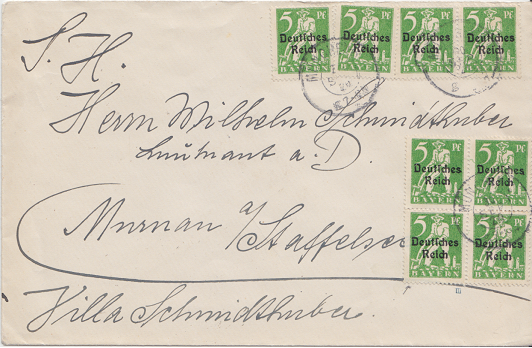 5 Pf 5 Pf 5 Pf 5 Pf
Deutsches Reich Deutsches Reich Deutsches Reich Deutsches Reich
BAYERN BAYERN BAYERN BAYERN
S. H.
Herrn Wilhelm Schmidthuber
Leutnant a. D.
5 Pf 5 Pf
Deutsches Reich Deutsches Reich
Murnau a/Staffelsee
5 Pf 5 Pf
Deutsches Reich Deutsches Reich
BAYERN BAYERN
Villa Schmidthuber.